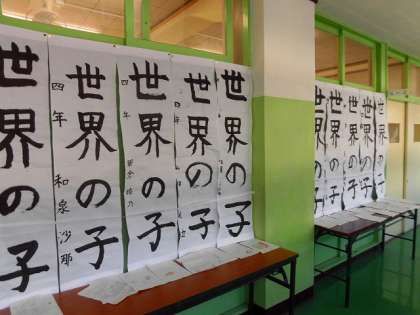 世界の子
世界の子
四年 和泉 沙那
世界の子
四年
世界の子
世界の子
世界の子
世界の子
世界の子
世界の子
世界の子